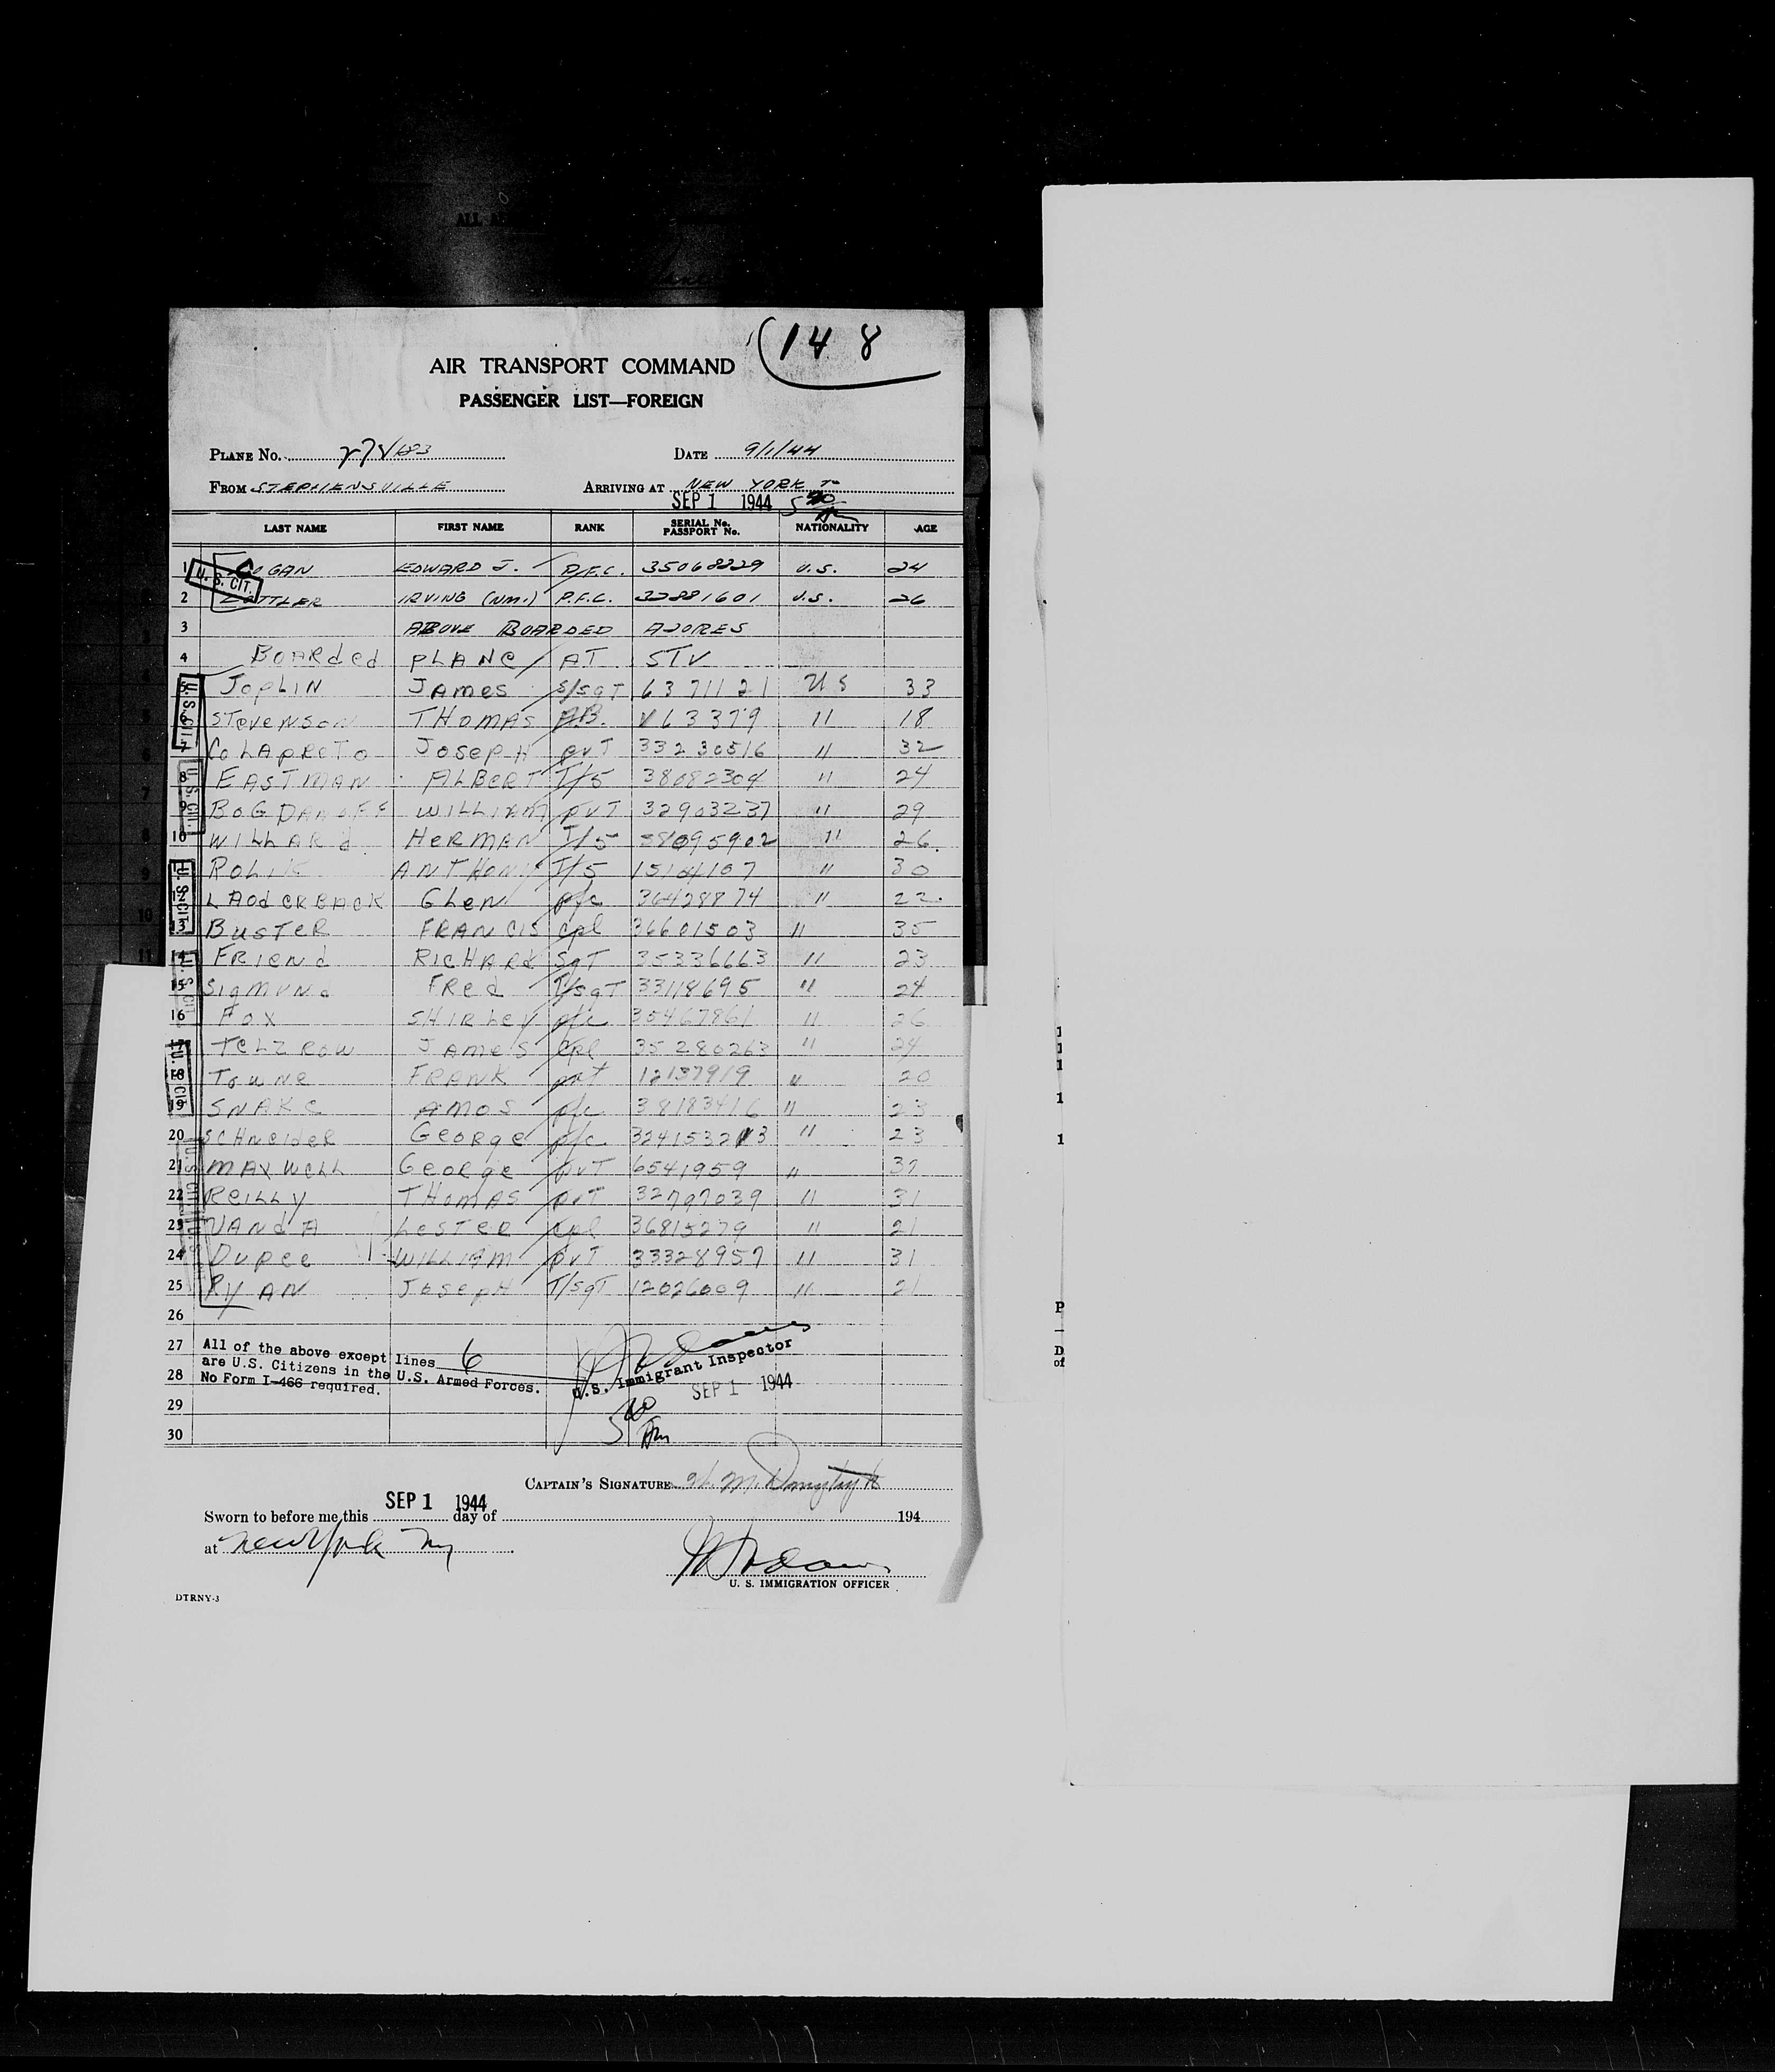 (14 8
AIR TRANSPORT COMMAND
PASSENGER LIST—FOREIGN
PLANE No. DATE 9/1/44
FROM STEPHENSVILLE ARRIVING AT NEW YORK
SEP 1 1944
LAST NAME FIRST NAME RANK SERIAL No. PASSPORT No. NATIONALITY AGE
1 EDWARD J. P.F.C. 35068229 U.S. 24
U.S. CIT.
2 IRVING (NM.) P.F.C. 32881601 U.S. 26
3 ABOVE BOARDED AZORES
4 BOARded PLANe AT STV
5 JOPLIN JAMes S/SGT 6371121 US 33
6 STevenSon THOMAS A.B. V63379 11 18
7 CoLAPRETO JOSePH PvT 33230516 11 32
8 EASTMAN ALBERT T/5 38082304 11 24
9 BOGDANOFF WILLIAM PVT 32903237 11 29
10 WILLARd HeRMAN T/5 38095902 11 26.
11 ROLIK ANTHONY T/5 15104107 11 30
12 LAOdeRBACK GLeN pfc 36428874 11 22
13 BUSTeR FRANCIS cpl 36601503 11 35
14 FRIENd RICHARd SgT 35336663 11 23
15 SIgMUNd FRed T/SgT 33118695 11 24
16 FOX SHIRLeY pfc 35467861 11 26
17 TeLZROW JAMeS Cpl 35280263 11 24
18 TowNe FRANK pvt 12137919 11 20
19 SNAKe AMOS pfc 38183416 11 23
20 SCHNeIdeR GeoRge pfc 11 23
21 MAXWeLL GeoRge pvT 6541959 11 37
22 ReILLY THOMAS pvT 32797039 11 31
23 VANdA LeSTeR cpl 36815279 11 21
24 DUPee WILLIAM PvT 33328957 11 31
25 RYAN JOSePH T/SgT 12026009 11 21
26
27 All of the above except lines 6
28 are U.S. Citizens in the U.S. Armed Forces.
No Form I-466 required.
U.S. Immigrant Inspector
SEP 1 1944
29
30
CAPTAIN'S SIGNATURE
SEP 1 1944
Sworn to before me this day of 194
at New York NY
U. S. IMMIGRATION OFFICER
DTRNY-3